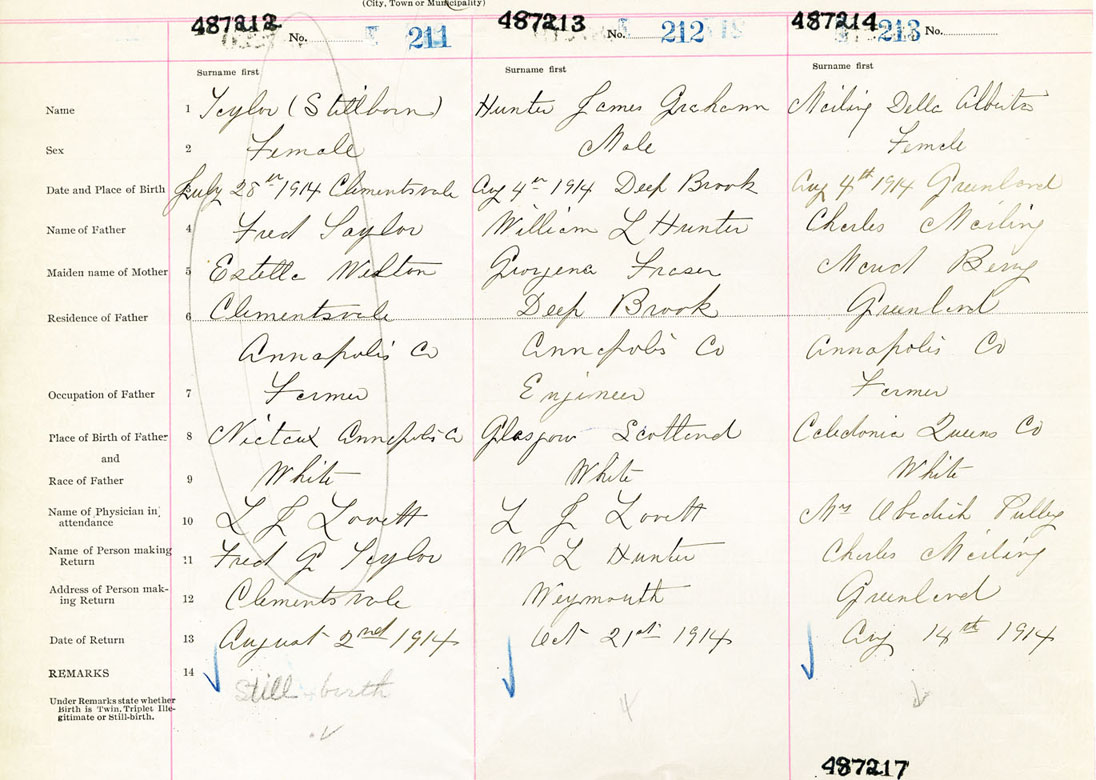 (City, Town or Municipality)
487212 No. 211 487213 No. 212 487214 213 No.
Surname first Surname first Surname first
Name 1 Taylor (Stillborn) Hunter James Graham Meiling Della Alberta
Sex 2 Female Male Female
Date and Place of Birth 3 July 28th 1914 Clementsvale Aug 4th 1914 Deep Brook Aug 4th 1914 Greenland
Name of Father 4 Fred Taylor William L Hunter Charles Meiling
Maiden name of Mother 5 Estella Georgena Fraser Maud Berry
Residence of Father 6 Clementsvale Deep Brook Greenland
Annapolis Co Annapolis Co Annapolis Co
Occupation of Father 7 Farmer Engineer Farmer
Place of Birth of Father 8 Nictaux Annapolis Co Glasgow Scotland Caledonia Queens Co
and
Race of Father 9 White White White
Name of Physician in attendance 10 L J Lovett L J Lovett Mrs Obediah
Name of Person making Return 11 Fred G Taylor W L Hunter Charles Meiling
Address of Person mak-ing Return 12 Clementsvale Weymouth Greenland
Date of Return 13 August 2nd 1914 Oct 21st 1914 Aug 14th 1914
REMARKS 14 Still birth
Under Remarks state whether
Birth is Twin, Triplet Ille-
gitimate or Still-birth.
487217